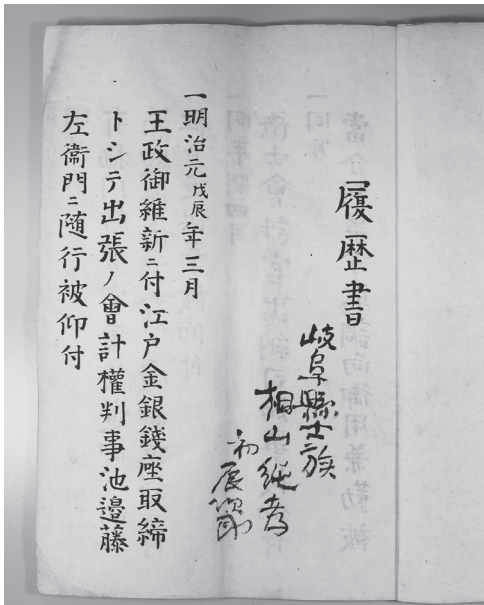 履歴書
岐阜縣士族
相山純孝
初 辰
一明治元戊辰年三月
王政御維新ニ付江戸金銀錢座取締
トシテ出張ノ會計權判事池邉藤
左衞門ニ随行被仰付